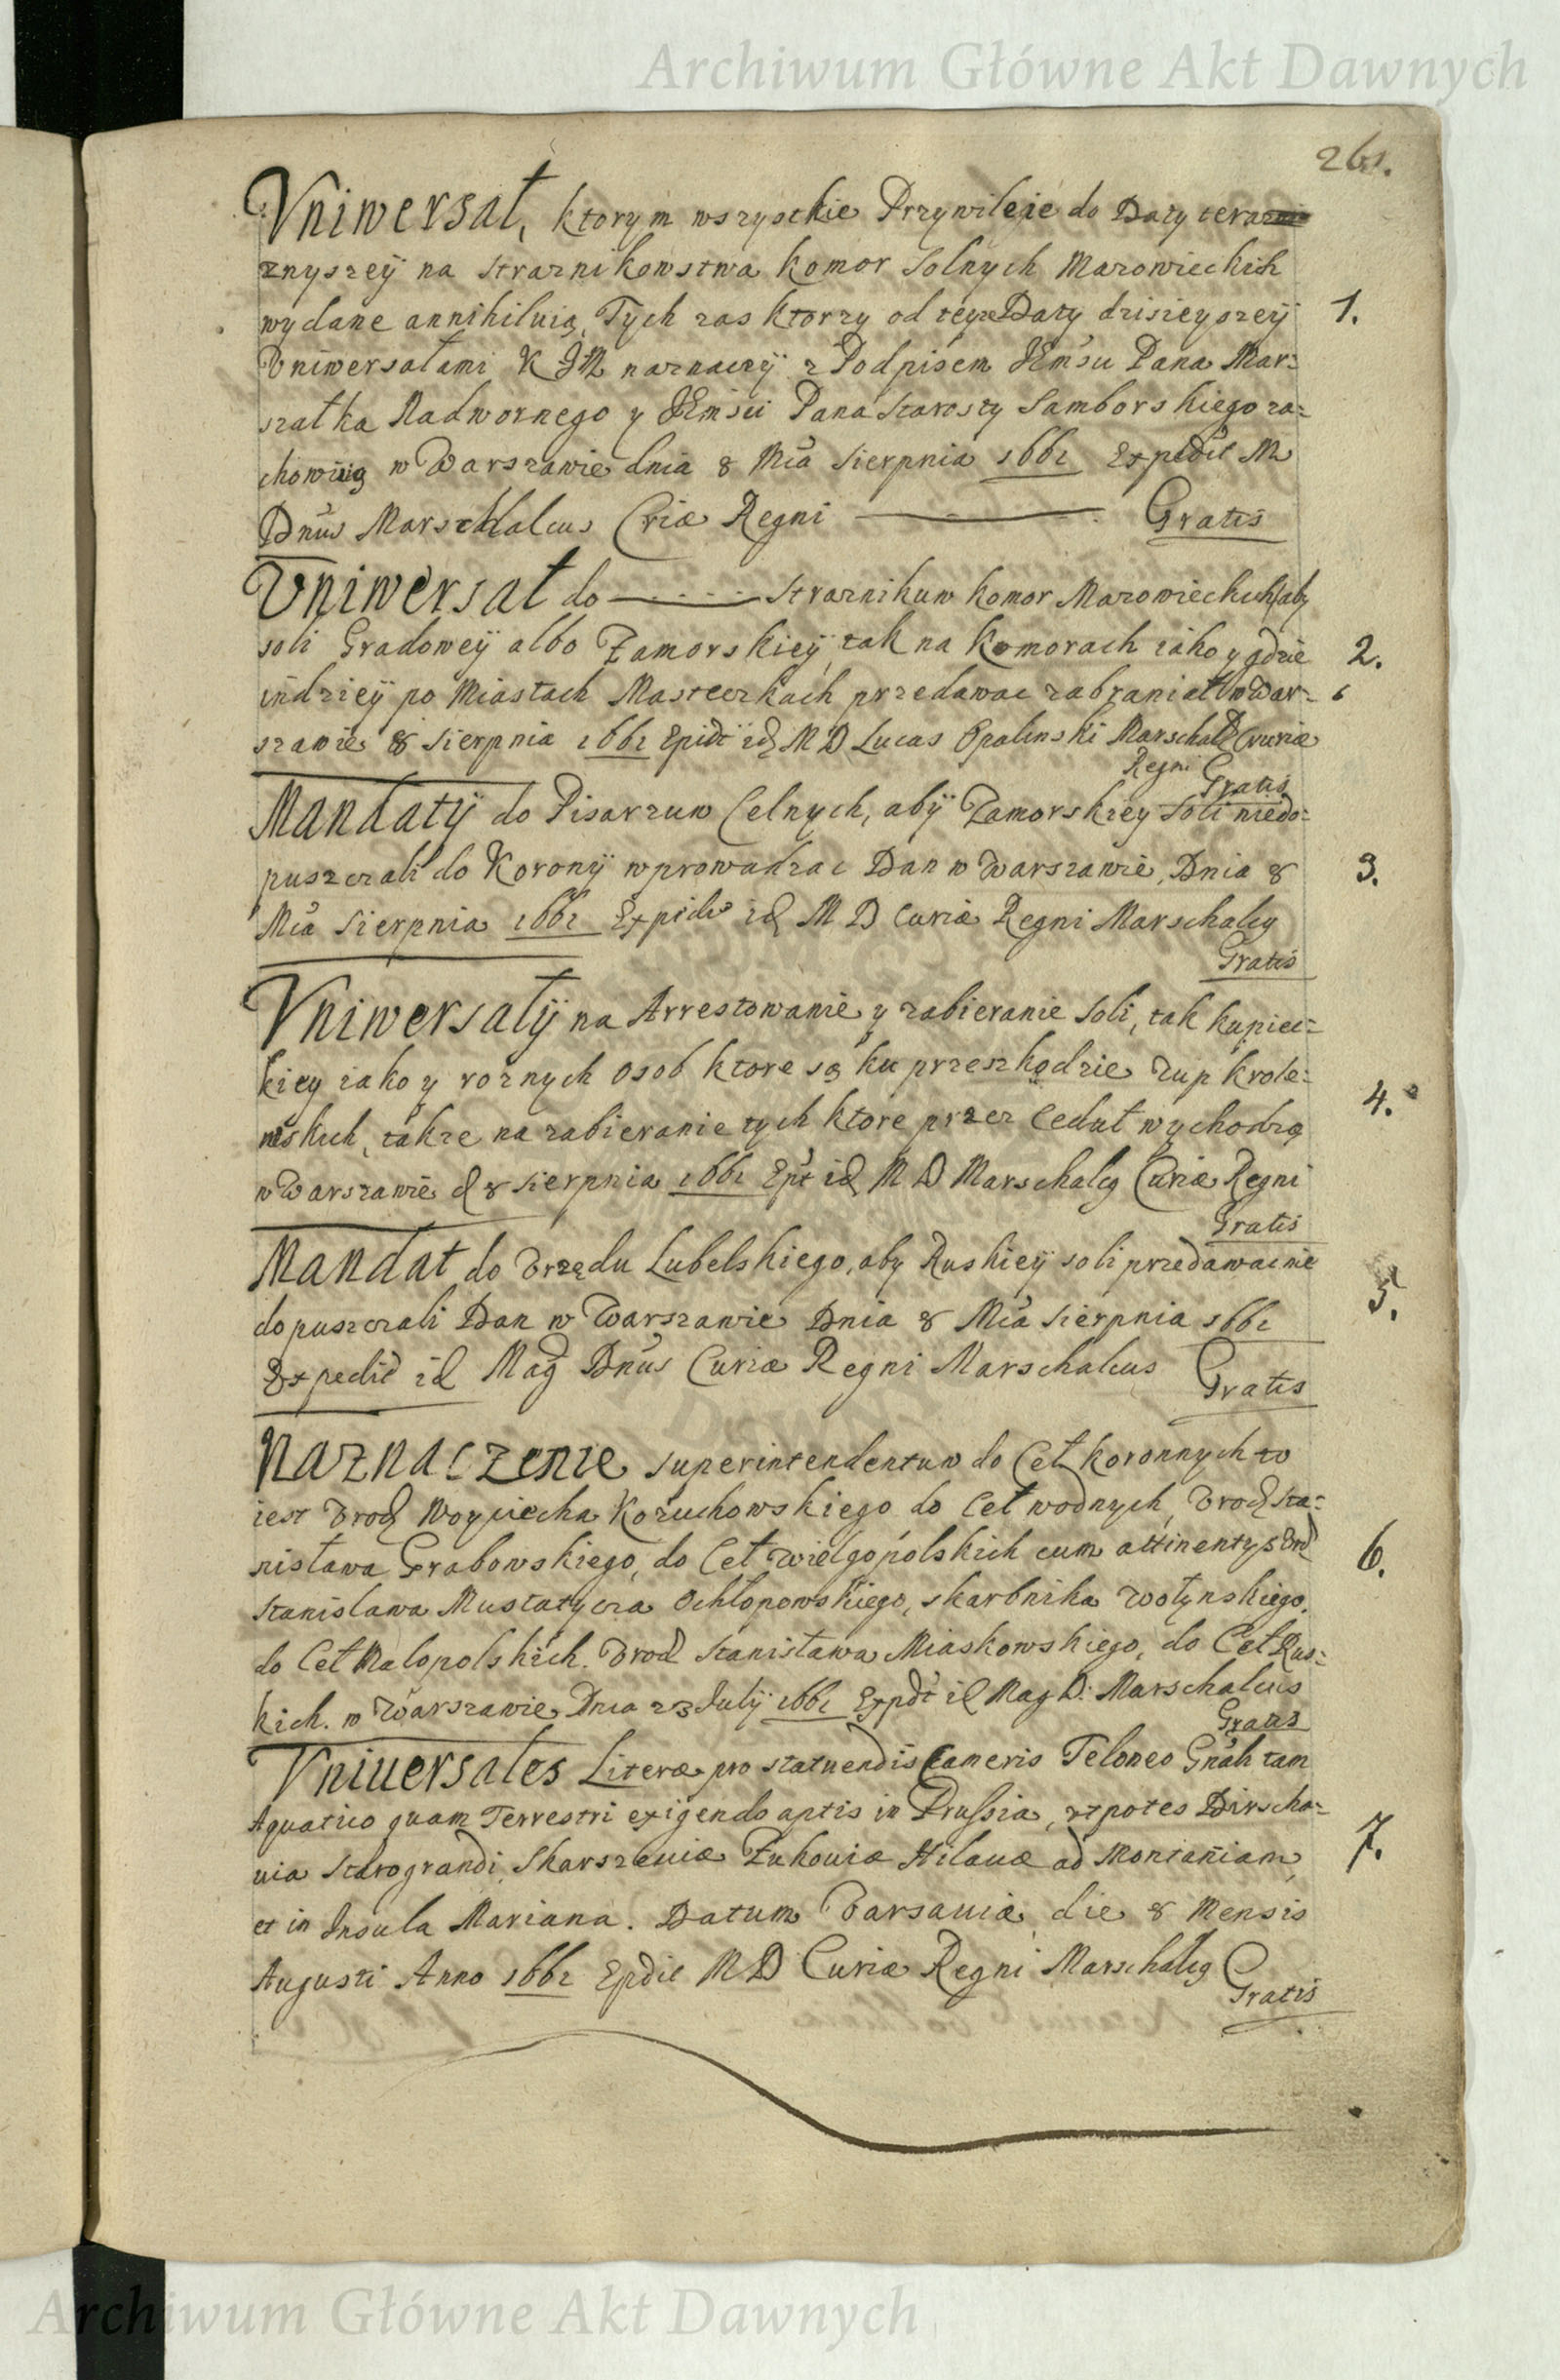 Archiwum Główne Akt Dawnych
261.
Vniwersał, ktorym wszystkie Przywileie do Daty teraz
znyszeÿ na strażnikowstwa komor Solnych Mazowieckich
wydane annihiluią, Tych zas ktorzy od teyże Daty dzisieyszeÿ 1.
Vniwersałami K JM naznaczÿ z Podpisem JEmsu Pana Mar:
szałka Nadwornego y JEmsu Pana Starosty Samborskiego za:
chowuią w Warszawie dnia 8 Mca Sierpnia 1661 Expedit M
Dnus Marschalcus Criæ Regni Gratis
Vniwersał do Strażnikuw Komor Mazowieckich, aby
soli Gradoweÿ albo Zamorskieÿ, tak na Komorach iako y gdzie 2.
indzieÿ po Miastach Masteczkach przedawac zabraniali w War:
szawie 8 Sierpnia 1661 Epidt id M D Lucas Opalinski Marschal Curiæ
Regni Gratis
Mandatÿ do Pisarzuw Celnych, abÿ Zamorskiey Soli niedo:
puszczali do Koronÿ wprowadzac Dan w Warszawie, Dnia 8 3.
Mca Sierpnia 1661 Expidt id M D Curiæ Regni Marschalcg
Gratis
Vniwersałÿ na Arrestowanie y zabieranie Soli, tak kupiec:
kiey iako y roznych osob ktore są ku przeszkodzie Zup krole:
wskich, takze na zabieranie tych ktore przez Ceduł wychodzą 4.
w Warszawie d 8 Sierpnia 1661 Ept id M D Marschalcg Curiæ Regni
Gratis
Mandat do Vrzędu Lubelskiego, aby Ruskieÿ soli przedawac nie
dopuszczali Dan w Warszawie Dnia 8 Mca Sierpnia 1661 5.
Expedit id Mag Dnus Curiæ Regni Marschalcus Gratis
Naznaczenie superintendentuw do Ceł koronnych to
iest Vrod Woyciecha Kozuchowskiego do Ceł wodnych, Vrod Sta:
nisława Grabowskiego, do Ceł Wielgopolskich cum attinentys Vrod 6.
Stanislawa Mustatycza Ochłopowskiego, skarbnika Wołynskiego,
do Ceł Małopolskich. Vrod Stanisława Miaskowskiego, do Ceł Rus:
kich. w Warszawie Dnia 23 Julÿ 1661 Expdt id Mag D: Marschalcus
Gratis
Vniuersales Literæ pro statuendis Cameris Teloneo Gnali tam
Aquatico quam Terrestri exigendo aptis in Prussia, utpotes Dirscha:
uia Starograndi, Skarszeuiæ Zukouiæ Hilauæ ad Montaniam, 7.
et in Insula Mariana. Datum Varsauiæ die 8 Mensis
Augusti Anno 1661 Epdit M D Curiæ Regni Marschalcg Gratis
Archiwum Główne Akt Dawnych